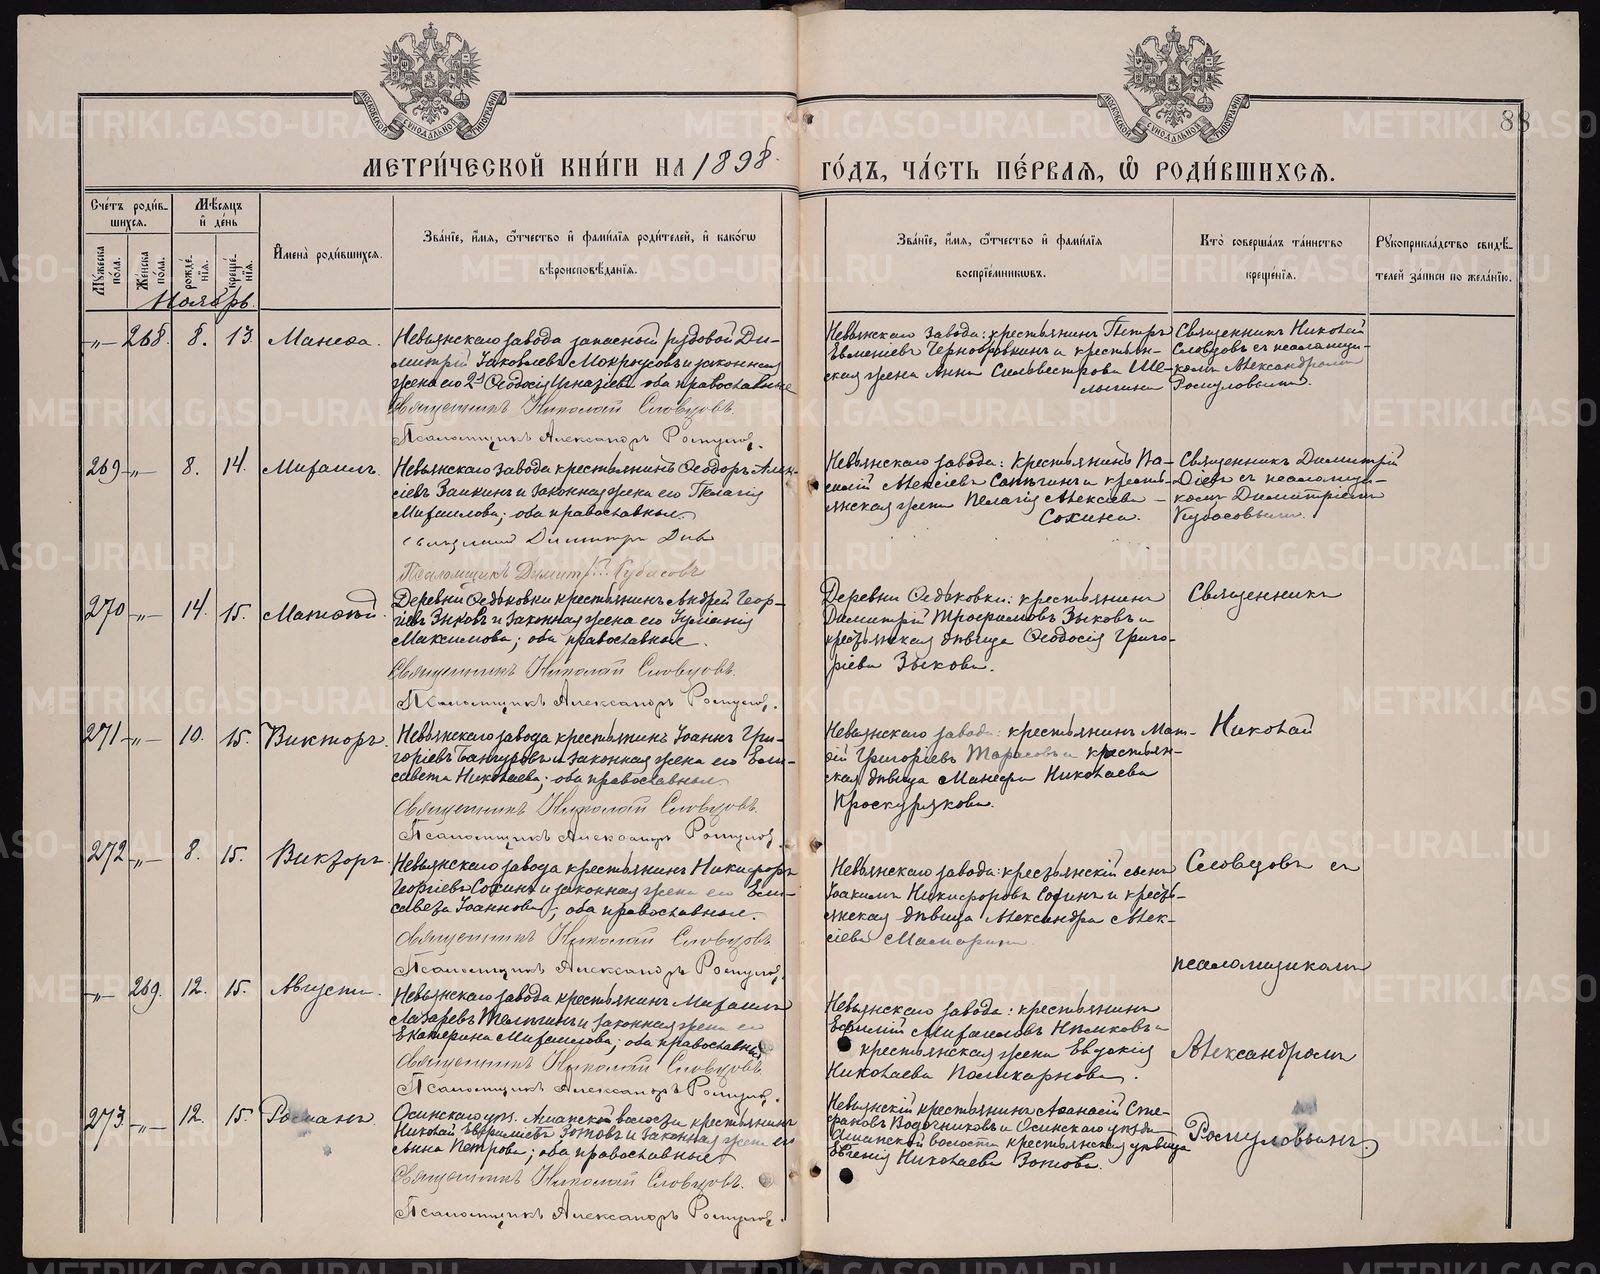 МЕТРИ́ЧЕСКОЙ КНИ́ГИ НА 1898
ГО́ДЪ, ЧА́СТЬ ПЕ́РВАЯ, Ѿ РОДИ́ВШИХСЯ.
88
МОСКОВСКОЙ СѴНОДАЛЬНОЙ ТИПОГРАФІИ
МОСКОВСКОЙ СѴНОДАЛЬНОЙ ТИПОГРАФІИ
Сче́тъ роди́в-
шихся.
Мѣ́сяцъ
и҆ де́нь
Му́жеска по́ла.
Же́нска по́ла.
рожде́нїѧ.
креще́нїѧ.
И҆мена̀ роди́вшихся.
Зва́нїе, и҆́мѧ, ѻ҆́тчество и҆ фами́лїѧ роди́телей, и҆ како́гѡ
вѣроисповѣ́данїѧ.
Зва́нїе, и҆́мѧ, ѻ҆́тчество и҆ фами́лїѧ
воспрїе́мникѡвъ.
Кто̀ соверша́лъ та́инство
креще́нїѧ.
Рꙋкоприкла́дство свидѣ́-
телей за́писи по жела́нїю.
Ноябрь.
-"- 268. 8. 13. Манефа.
Невьянскаго завода запасный рядовой Ди-
митрій Іаковлевъ Мокроусовъ и законная
жена его 2я Ѳеодосія Игнатіева оба православные
Священникъ Николай Словцовъ.
Псаломщикъ Александръ Ромулов.
Невьянскаго завода: крестьянинъ Петръ
Евменіевъ Чернобровкинъ и крестьян-
ская жена Анна Сильвестрова Ше-
лыгина
Священникъ Николай
Словцовъ съ псаломщи-
комъ Александромъ
Ромуловымъ.
269 -"- 8. 14. Михаилъ.
Невьянскаго завода крестьянинъ Ѳеодоръ Алек-
сіевъ Заикинъ и законная жена его Пелагія
Михаилова; оба православные.
Священникъ Димитрій Діевъ
Псаломщикъ Димитрій Кубасовъ
Невьянскаго завода: крестьянинъ Ва-
силій Алексіевъ и кресть-
янская жена Пелагія Алексіева
Сохина.
Священникъ Димитрій
Діевъ съ псаломщи-
комъ Димитріемъ
Кубасовымъ.
270 -"- 14. 15. Матѳей.
Деревни Ѳедьковки крестьянинъ Андрей Геор-
гіевъ Зыковъ и законная жена его Іуліанія
Максимова; оба православные.
Священникъ Николай Словцовъ.
Псаломщикъ Александръ Ромулов.
Деревни Ѳедьковки: крестьянинъ
Димитрій Трофимовъ Зыковъ и
крестьянская дѣвица Ѳеодосія Григо-
ріева Зыкова.
Священникъ
271 -"- 10. 15. Викторъ.
Невьянскаго завода крестьянинъ Іоаннъ Гри-
горіевъ и законная жена его Ели-
савета Николаева; оба православные.
Священникъ Николай Словцовъ.
Псаломщикъ Александръ Ромулов.
Невьянскаго завода: крестьянинъ Мат-
ѳій Григоріевъ Тарасовъ и крестьян-
ская дѣвица Манефа Николаева
Проскурякова.
Николай
272 -"- 8. 15. Викторъ.
Невьянскаго завода крестьянинъ Никифоръ
Георгіевъ Сохинъ и законная жена его Ели-
савета Іоаннова; оба православные.
Священникъ Николай Словцовъ
Псаломщикъ Александръ Ромулов.
Невьянскаго завода: крестьянскій сынъ
Іоакимъ Никифоровъ Сохинъ и кресть-
янская дѣвица Александра Алек-
сіева
Словцовъ съ
-"- 269. 12. 15. Августа.
Невьянскаго завода крестьянинъ Михаилъ
Лазаревъ и законная жена его
Екатерина Михаилова; оба православные
Священникъ Николай Словцовъ.
Псаломщикъ Александръ Ромулов.
Невьянскаго завода: крестьянинъ
Ефимій Михаиловъ и
крестьянская жена Евдокія
Николаева Поликарпова.
псаломщикомъ
Александромъ
273. -"- 12. 15. Романъ.
Осинскаго уѣз. Ашапской волости крестьянинъ
Николай Евфиміевъ Зотовъ и законная жена его
Анна Петрова; оба православные
Священникъ Николай Словцовъ.
Псаломщикъ Александръ Ромулов.
Невьянскій крестьянинъ Аѳанасій Сте-
фановъ и Осинскаго уѣзда
Ашапской волости крестьянская дѣвица
Евгенія Николаева Зотова.
Ромуловымъ.